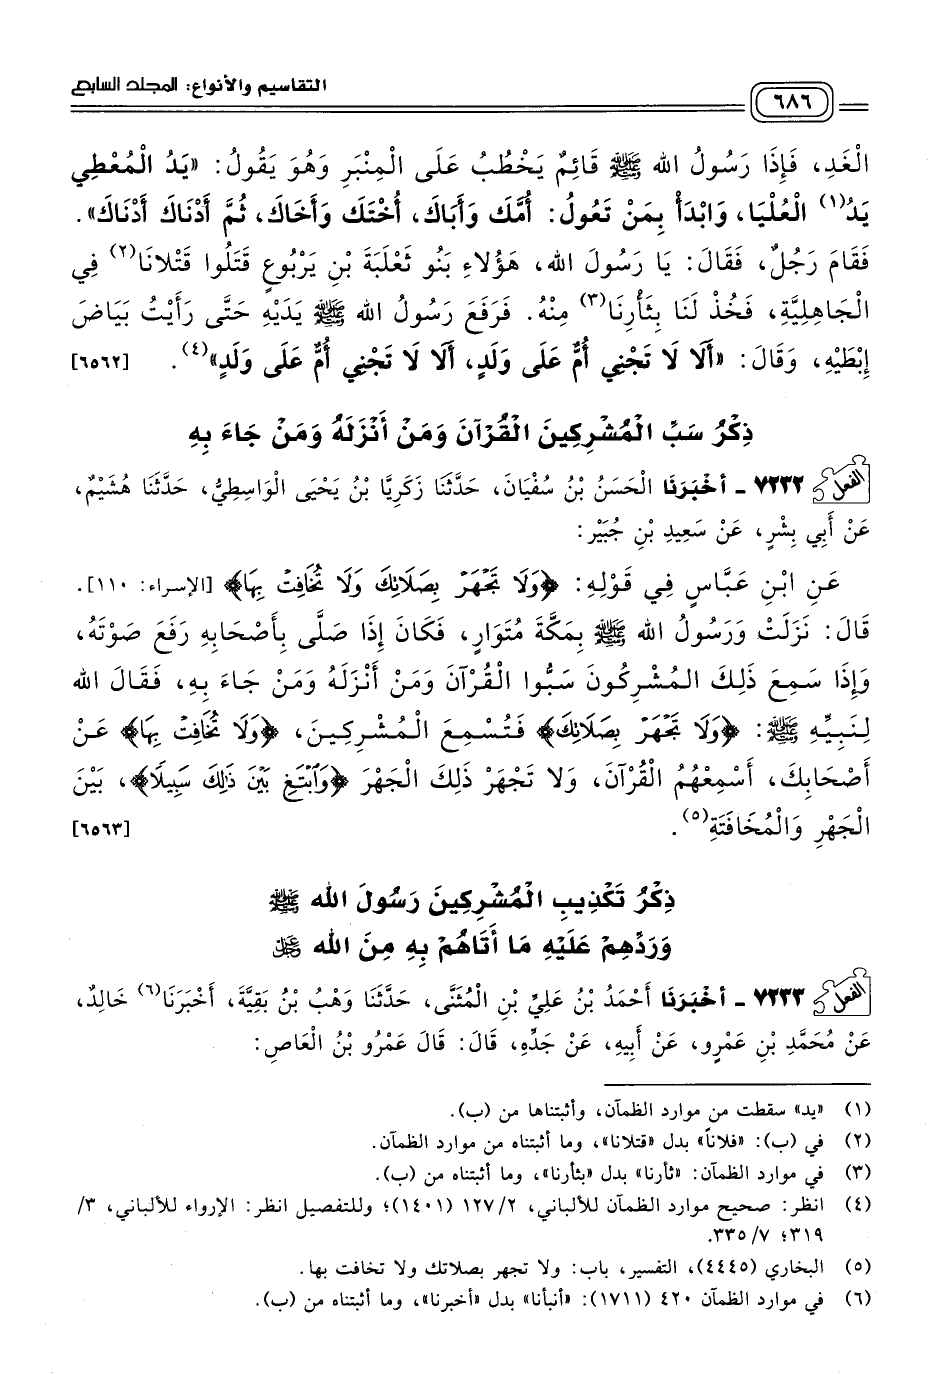 التقاسيم والأنواع: المجلد السابع
٦٨٦
الْغَدِ، فَإِذَا رَسُولُ الله ﷺ قَائِمٌ يَخْطُبُ عَلَى الْمِنْبَرِ وَهُوَ يَقُولُ: «يَدُ الْمُعْطِي
يَدُ(١) الْعُلْيَا، وَابْدَأْ بِمَنْ تَعُولُ: أُمَّكَ وَأَبَاكَ، أُخْتَكَ وَأَخَاكَ، ثُمَّ أَدْنَاكَ أَدْنَاكَ».
فَقَامَ رَجُلٌ، فَقَالَ: يَا رَسُولَ الله، هَؤُلَاءِ بَنُو ثَعْلَبَةَ بْنِ يَرْبُوعٍ قَتَلُوا قَتْلَانَا(٢) فِي
الْجَاهِلِيَّةِ، فَخُذْ لَنَا بِثَأْرِنَا(٣) مِنْهُ. فَرَفَعَ رَسُولُ الله ﷺ يَدَيْهِ حَتَّى رَأَيْتُ بَيَاضَ
إِبْطَيْهِ، وَقَالَ: «أَلَا لَا تَجْنِي أُمٌّ عَلَى وَلَدٍ، أَلَا لَا تَجْنِي أُمٌّ عَلَى وَلَدٍ»(٤). [٦٥٦٢]
ذِكْرُ سَبِّ الْمُشْرِكِينَ الْقُرْآنَ وَمَنْ أَنْزَلَهُ وَمَنْ جَاءَ بِهِ
الفعل ٧٢٣٢ - أَخْبَرَنَا الْحَسَنُ بْنُ سُفْيَانَ، حَدَّثَنَا زَكَرِيَّا بْنُ يَحْيَى الْوَاسِطِيُّ، حَدَّثَنَا هُشَيْمٌ،
عَنْ أَبِي بِشْرٍ، عَنْ سَعِيدِ بْنِ جُبَيْرٍ:
عَنِ ابْنِ عَبَّاسٍ فِي قَوْلِهِ: ﴿وَلَا تَجْهَرْ بِصَلَاتِكَ وَلَا تُخَافِتْ بِهَا﴾ [الإسراء: ١١٠].
قَالَ: نَزَلَتْ وَرَسُولُ الله ﷺ بِمَكَّةَ مُتَوَارٍ، فَكَانَ إِذَا صَلَّى بِأَصْحَابِهِ رَفَعَ صَوْتَهُ،
وَإِذَا سَمِعَ ذَلِكَ الْمُشْرِكُونَ سَبُّوا الْقُرْآنَ وَمَنْ أَنْزَلَهُ وَمَنْ جَاءَ بِهِ، فَقَالَ الله
لِنَبِيِّهِ ﷺ: ﴿وَلَا تَجْهَرْ بِصَلَاتِكَ﴾ فَتُسْمِعَ الْمُشْرِكِينَ، ﴿وَلَا تُخَافِتْ بِهَا﴾ عَنْ
أَصْحَابِكَ، أَسْمِعْهُمُ الْقُرْآنَ، وَلَا تَجْهَرْ ذَلِكَ الْجَهْرَ ﴿وَٱبْتَغِ بَيْنَ ذَٰلِكَ سَبِيلًا﴾، بَيْنَ
الْجَهْرِ وَالْمُخَافَتَةِ(٥). [٦٥٦٣]
ذِكْرُ تَكْذِيبِ الْمُشْرِكِينَ رَسُولَ الله ﷺ
وَرَدِّهِمْ عَلَيْهِ مَا أَتَاهُمْ بِهِ مِنَ الله ﷻ
الفعل ٧٢٣٣ - أَخْبَرَنَا أَحْمَدُ بْنُ عَلِيِّ بْنِ الْمُثَنَّى، حَدَّثَنَا وَهْبُ بْنُ بَقِيَّةَ، أَخْبَرَنَا(٦) خَالِدٌ،
عَنْ مُحَمَّدِ بْنِ عَمْرٍو، عَنْ أَبِيهِ، عَنْ جَدِّهِ، قَالَ: قَالَ عَمْرُو بْنُ الْعَاصِ:
(١) «يد» سقطت من موارد الظمآن، وأثبتناها من (ب).
(٢) في (ب): «فلاناً» بدل «قتلانا»، وما أثبتناه من موارد الظمآن.
(٣) في موارد الظمآن: «ثأرنا» بدل «بثأرنا»، وما أثبتناه من (ب).
(٤) انظر: صحيح موارد الظمآن للألباني، ١٢٧/٢ (١٤٠١)؛ وللتفصيل انظر: الإرواء للألباني، ٣/
٣١٩؛ ٣٣٥/٧.
(٥) البخاري (٤٤٤٥)، التفسير، باب: ولا تجهر بصلاتك ولا تخافت بها.
(٦) في موارد الظمآن ٤٢٠ (١٧١١): «أنبأنا» بدل «أخبرنا»، وما أثبتناه من (ب).